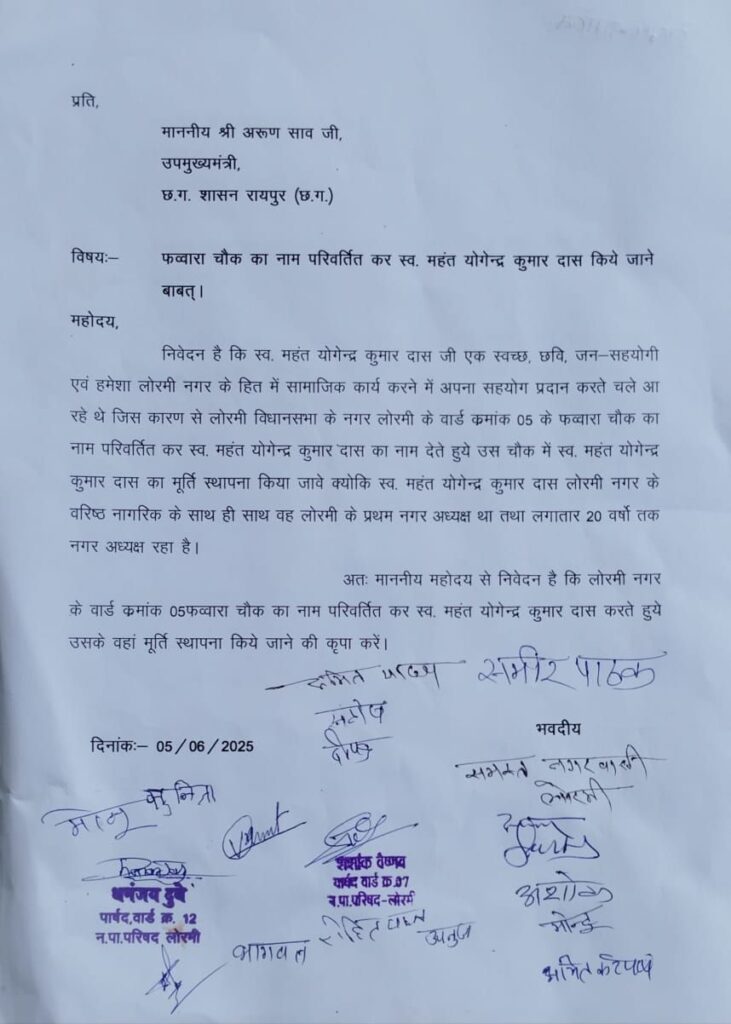 प्रति,
माननीय श्री अरूण साव जी,
उपमुख्यमंत्री,
छ.ग. शासन रायपुर (छ.ग.)
विषयः– फव्वारा चौक का नाम परिवर्तित कर स्व. महंत योगेन्द्र कुमार दास किये जाने
बाबत्।
महोदय,
निवेदन है कि स्व. महंत योगेन्द्र कुमार दास जी एक स्वच्छ, छवि, जन–सहयोगी
एवं हमेशा लोरमी नगर के हित में सामाजिक कार्य करने में अपना सहयोग प्रदान करते चले आ
रहे थे जिस कारण से लोरमी विधानसभा के नगर लोरमी के वार्ड क्रमांक 05 के फव्वारा चौक का
नाम परिवर्तित कर स्व. महंत योगेन्द्र कुमार दास का नाम देते हुये उस चौक में स्व. महंत योगेन्द्र
कुमार दास का मूर्ति स्थापना किया जावे क्योकि स्व. महंत योगेन्द्र कुमार दास लोरमी नगर के
वरिष्ठ नागरिक के साथ ही साथ वह लोरमी के प्रथम नगर अध्यक्ष था तथा लगातार 20 वर्षो तक
नगर अध्यक्ष रहा है।
अतः माननीय महोदय से निवेदन है कि लोरमी नगर
के वार्ड क्रमांक 05फव्वारा चौक का नाम परिवर्तित कर स्व. महंत योगेन्द्र कुमार दास करते हुये
उसके वहां मूर्ति स्थापना किये जाने की कृपा करें।
समीर पाठक
दिनांकः– 05/06/2025
भवदीय
समस्त नगरवासी
लोरमी
धनंजय दुबे
पार्षद,वार्ड क्र. 12
न.पा.परिषद लोरमी
शशांक वैष्णव
पार्षद वार्ड क्र.07
न.पा.परिषद-लोरमी
अशोक
भागवत